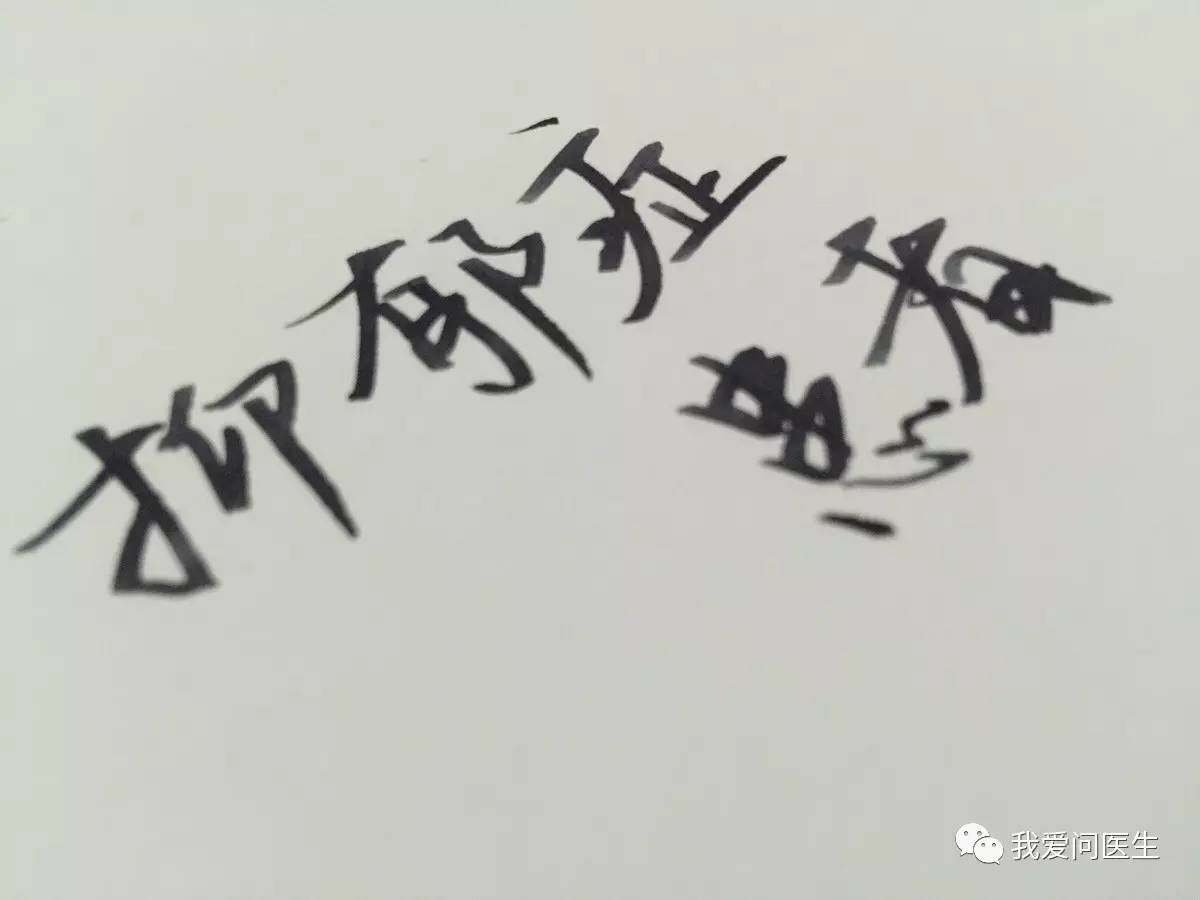 抑郁症
患者
我爱问医生